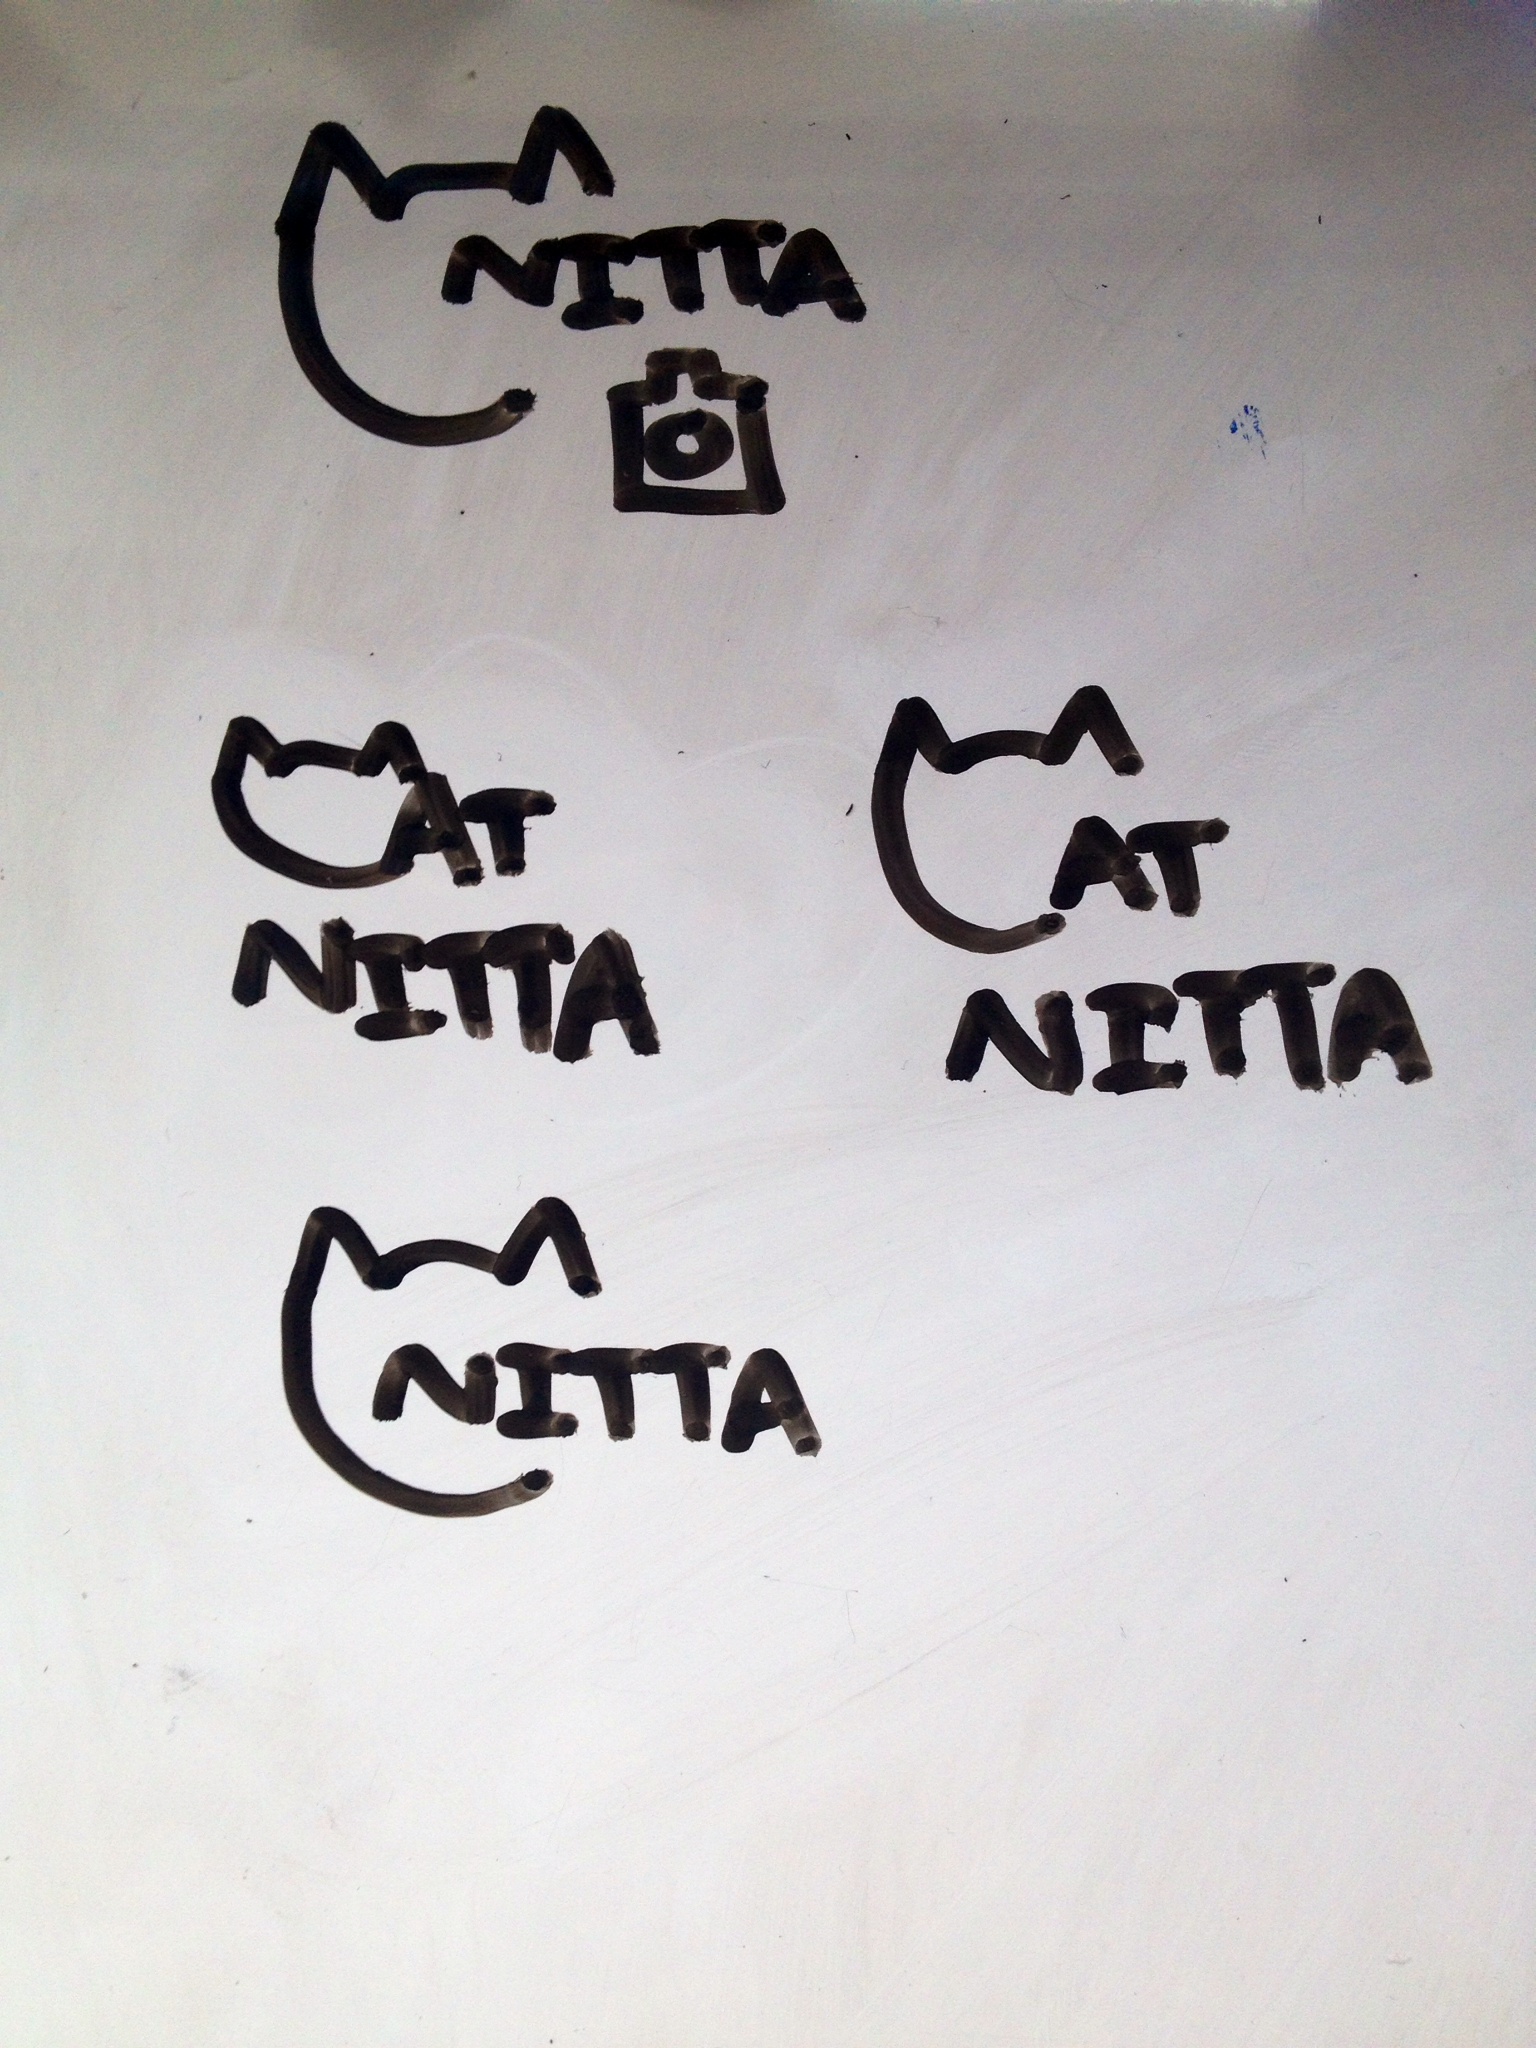 NITTA
CAT
NITTA
CAT
NITTA
NITTA